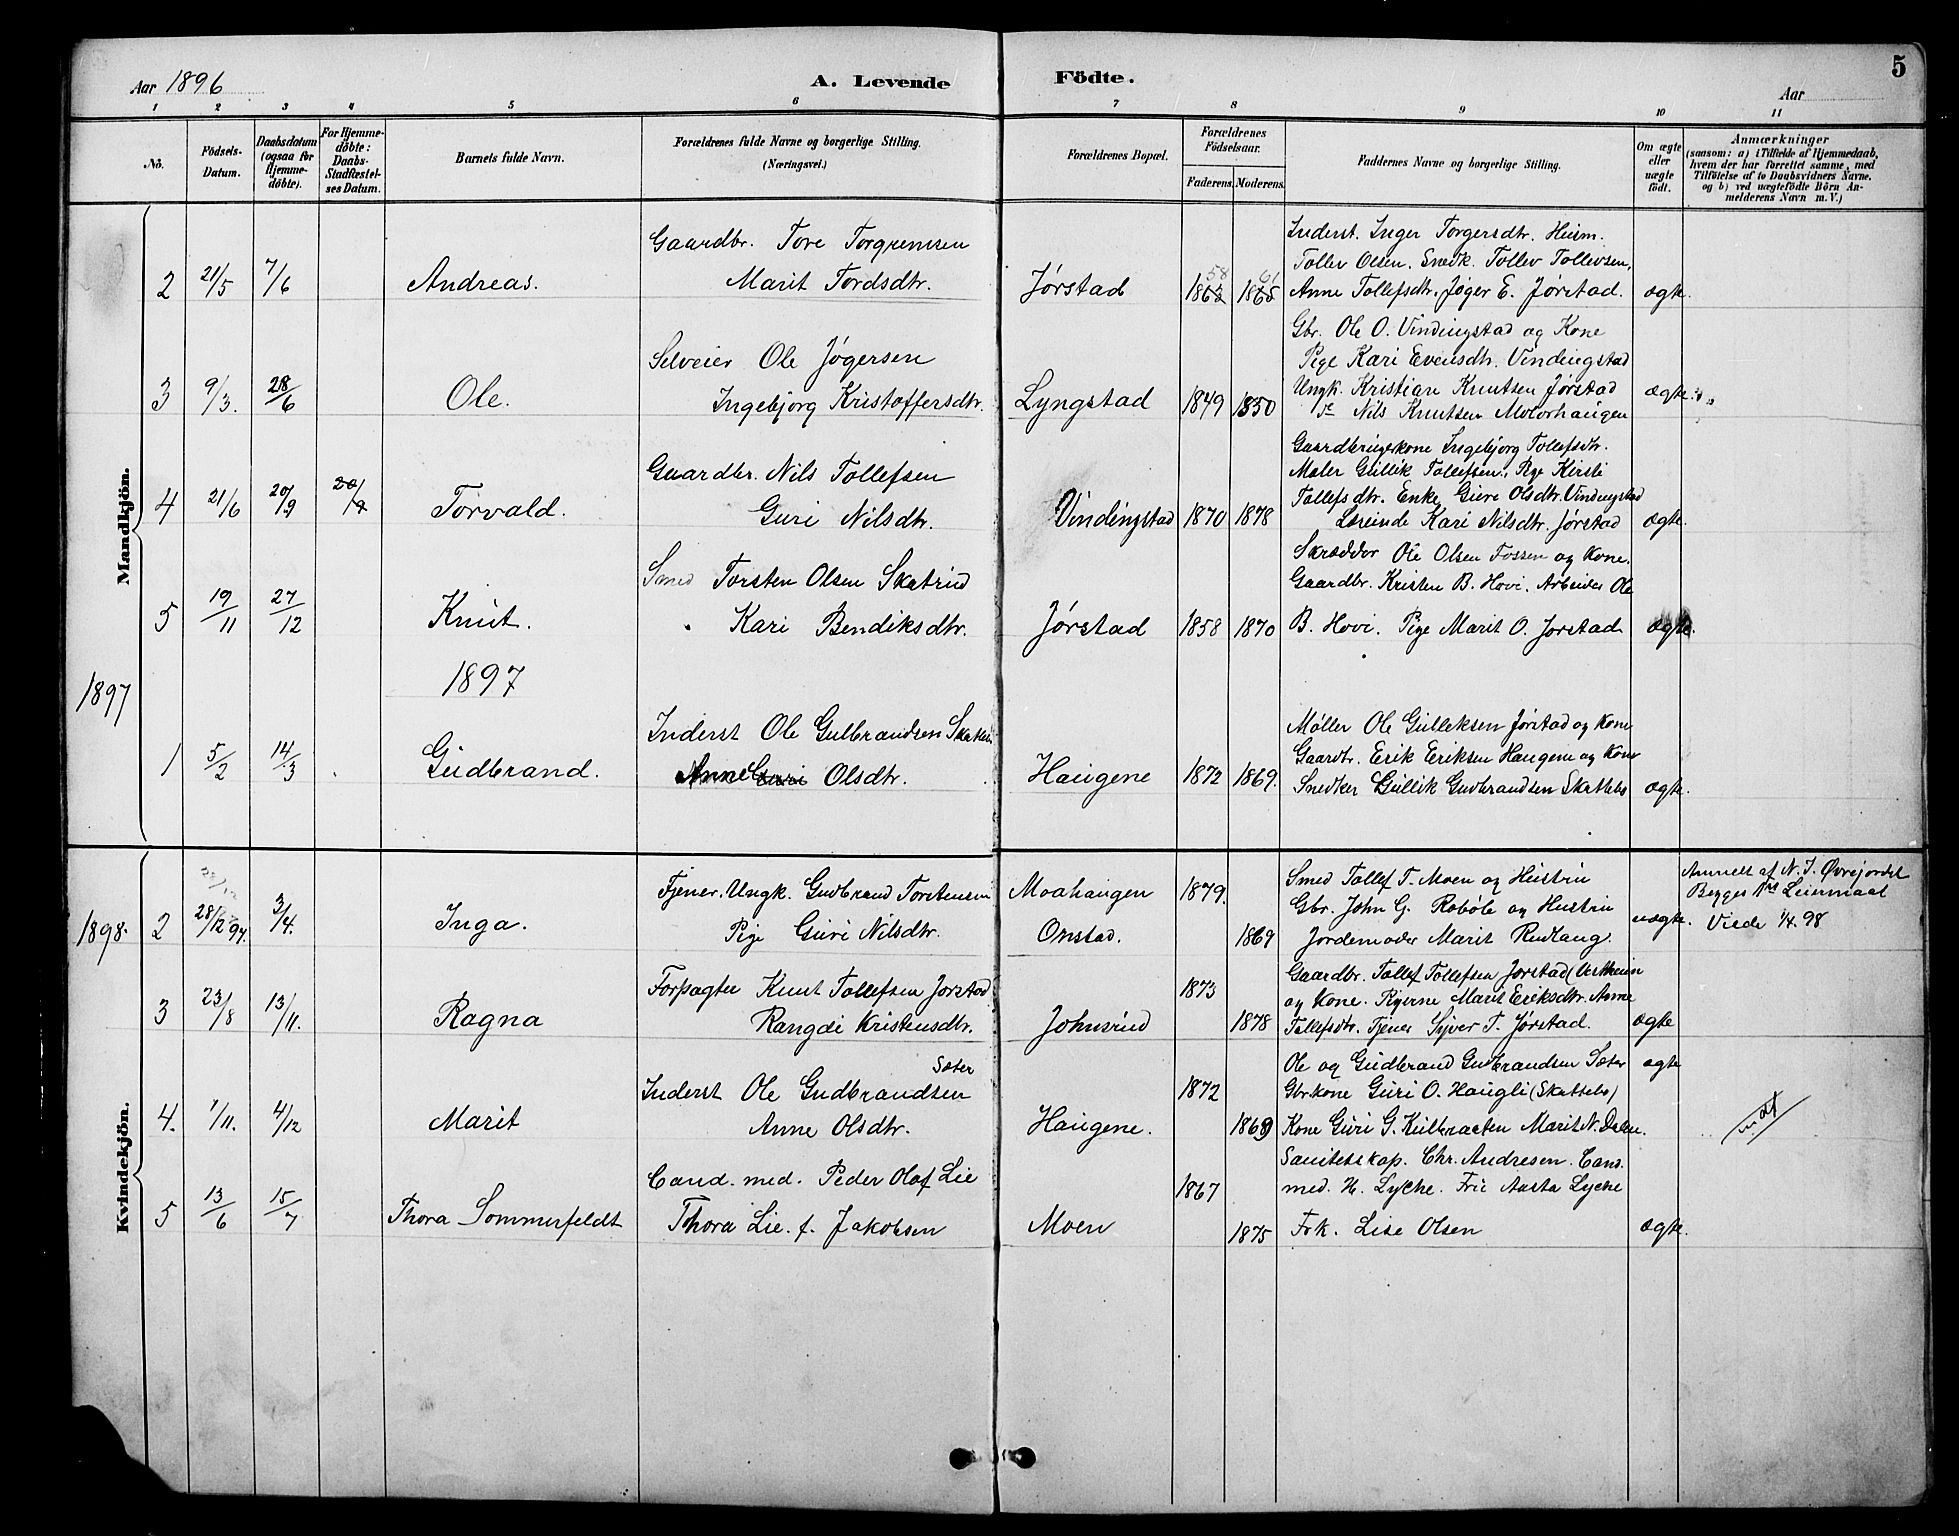 5
Aar 1896 A. Levende Födte. Aar
1 2 3 4 5 6 7 8 9 10 11
No.
Födsels-Datum.
Daabsdatum (ogsaa for Hjemme-döbte).
For Hjemme-döbte: Daabs-Stadfæstel-ses Datum.
Barnets fulde Navn.
Forældrenes fulde Navne og borgerlige Stilling. (Næringsvei.)
Forældrenes Bopæl.
Forældrenes Födselsaar.
Faderens. Moderens.
Faddernes Navne og borgerlige Stilling.
Om ægte eller uægte födt.
Anmærkninger
(saasom: a) i Tilfælde af Hjemmedaab,
hvem der har forrettet samme, med
Tilföielse af to Daabsvidners Navne.
og b) ved uægtefödte Börn An-
melderens Navn m. V.)
Mandkjön.
Gaardbr. Tore Torgremsen
Inderst. Inger Torgersdtr. Husm.
Tollev Olsen. Snedk. Tollev Tollevsen,
2 21/5 7/6 Andreas. Marit Tordsdtr. Jørstad 58 61 Anne Tollefsdtr. Jøger E. Jørstad. ægte.
Gbr. Ole O. Vindingstad og Kone
Selveier Ole Jøgersen Pige Kari Evensdtr. Vindingstad
3 9/3. 28/6 Ole. Ingebjorg Kristoffersdtr. Lyngstad 1849 1850 Ungk. Kristian Knutsen Jørstad ægte.
Nils Knutsen Molorhaugen
Gaardbrugerkone Ingebjorg Tollefsdtr.
Gaardbr. Nils Tollefsen Maler Gullik Tollefsen. Pige Kirsti
4 21/6 20/9 Torvald. Guri Nilsdtr. Vindingstad 1870 1878 Tollefsdtr. Enke Guri Olsdtr. Vindingstad
Kari Nilsdtr. Jørstad ægte.
Skrædder Ole Olsen Fossen og Kone.
Smed Torsten Olsen Skatrud Gaardbr. Kristen B. Hovi. Arbeider Ole
5 19/11 27/12 Knut. Kari Bendiksdtr. Jørstad 1858 1870 B. Hovi. Pige Marit O. Jorstad ægte.
1897 1897
Inderst Ole Gulbrandsen Møller Ole Gulleksen Jørstad og Kone
Gaardbr. Erik Eriksen Haugene og Kone
1 5/2 14/3 Gudbrand. Anne Guri Olsdtr. Haugene 1872 1869. Snedker Gullik Gudbrandsen Skattebo ægte.
Kvindekjön.
1898.
Tjener. Ungk. Gudbrand Torstensen Moahaugen 1879. Smed Tollef T. Moen og Hustru Anmelt af N. J. Øvrejordet
Gbr. John G. Robøle og Hustru
2 28/12 97. 3/4. Inga. Pige Guri Nilsdtr. Onstad. 1869 Jordemoder Marit Rudlang. uægte. 1/4. 98
Forpagter Knut Tollefsen Jorstad 1873 Gaardbr. Tollef Tollefsen Jorstad
og Kone. Pigerne Marit Eriksdtr. Anne
3 23/8 13/11. Ragna Rangdi Kristensdtr. Johnsrud 1878 Tollefsdtr. Tjener Syver T. Jørstad. ægte
Sæter
Inderst Ole Gudbrandsen 1872 Ole og Gudbrand Gudbrandsen Sæter ægte
Gbrkone Guri O. Haugli (Skattebo)
4. 1/11. 4/12 Marit Anne Olsdtr. Haugene. 1869 Kone Guri G. Kulbraaten Marit N. Dalen.
Sanitetskap. Chr. Andresen. Cand.
Cand. med. Peder Olaf Lie 1867 med. H. Lyche. Frk Aasta Lyche
5 13/6 15/7 Thora Sommerfeldt Thora Lie. f. Jakobsen Moen 1875 Frk. Lise Olsen ægte.